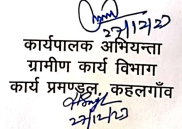 27/12/23
कार्यपालक अभियन्ता
ग्रामीण कार्य विभाग
कार्य प्रमण्डल, कहलगाँव
27/12/23